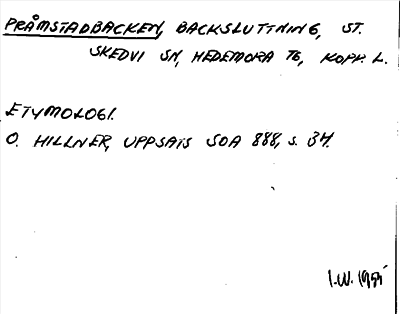 PRÅMSTADBACKEN, BACKSLUTTNING, ST.
SKEDVI SN, HEDEMORA TG, KOPP. L.
ETYMOLOGI.
O. HILLNER, UPPSATS SOA 888, S. 34.
I.W. 1955